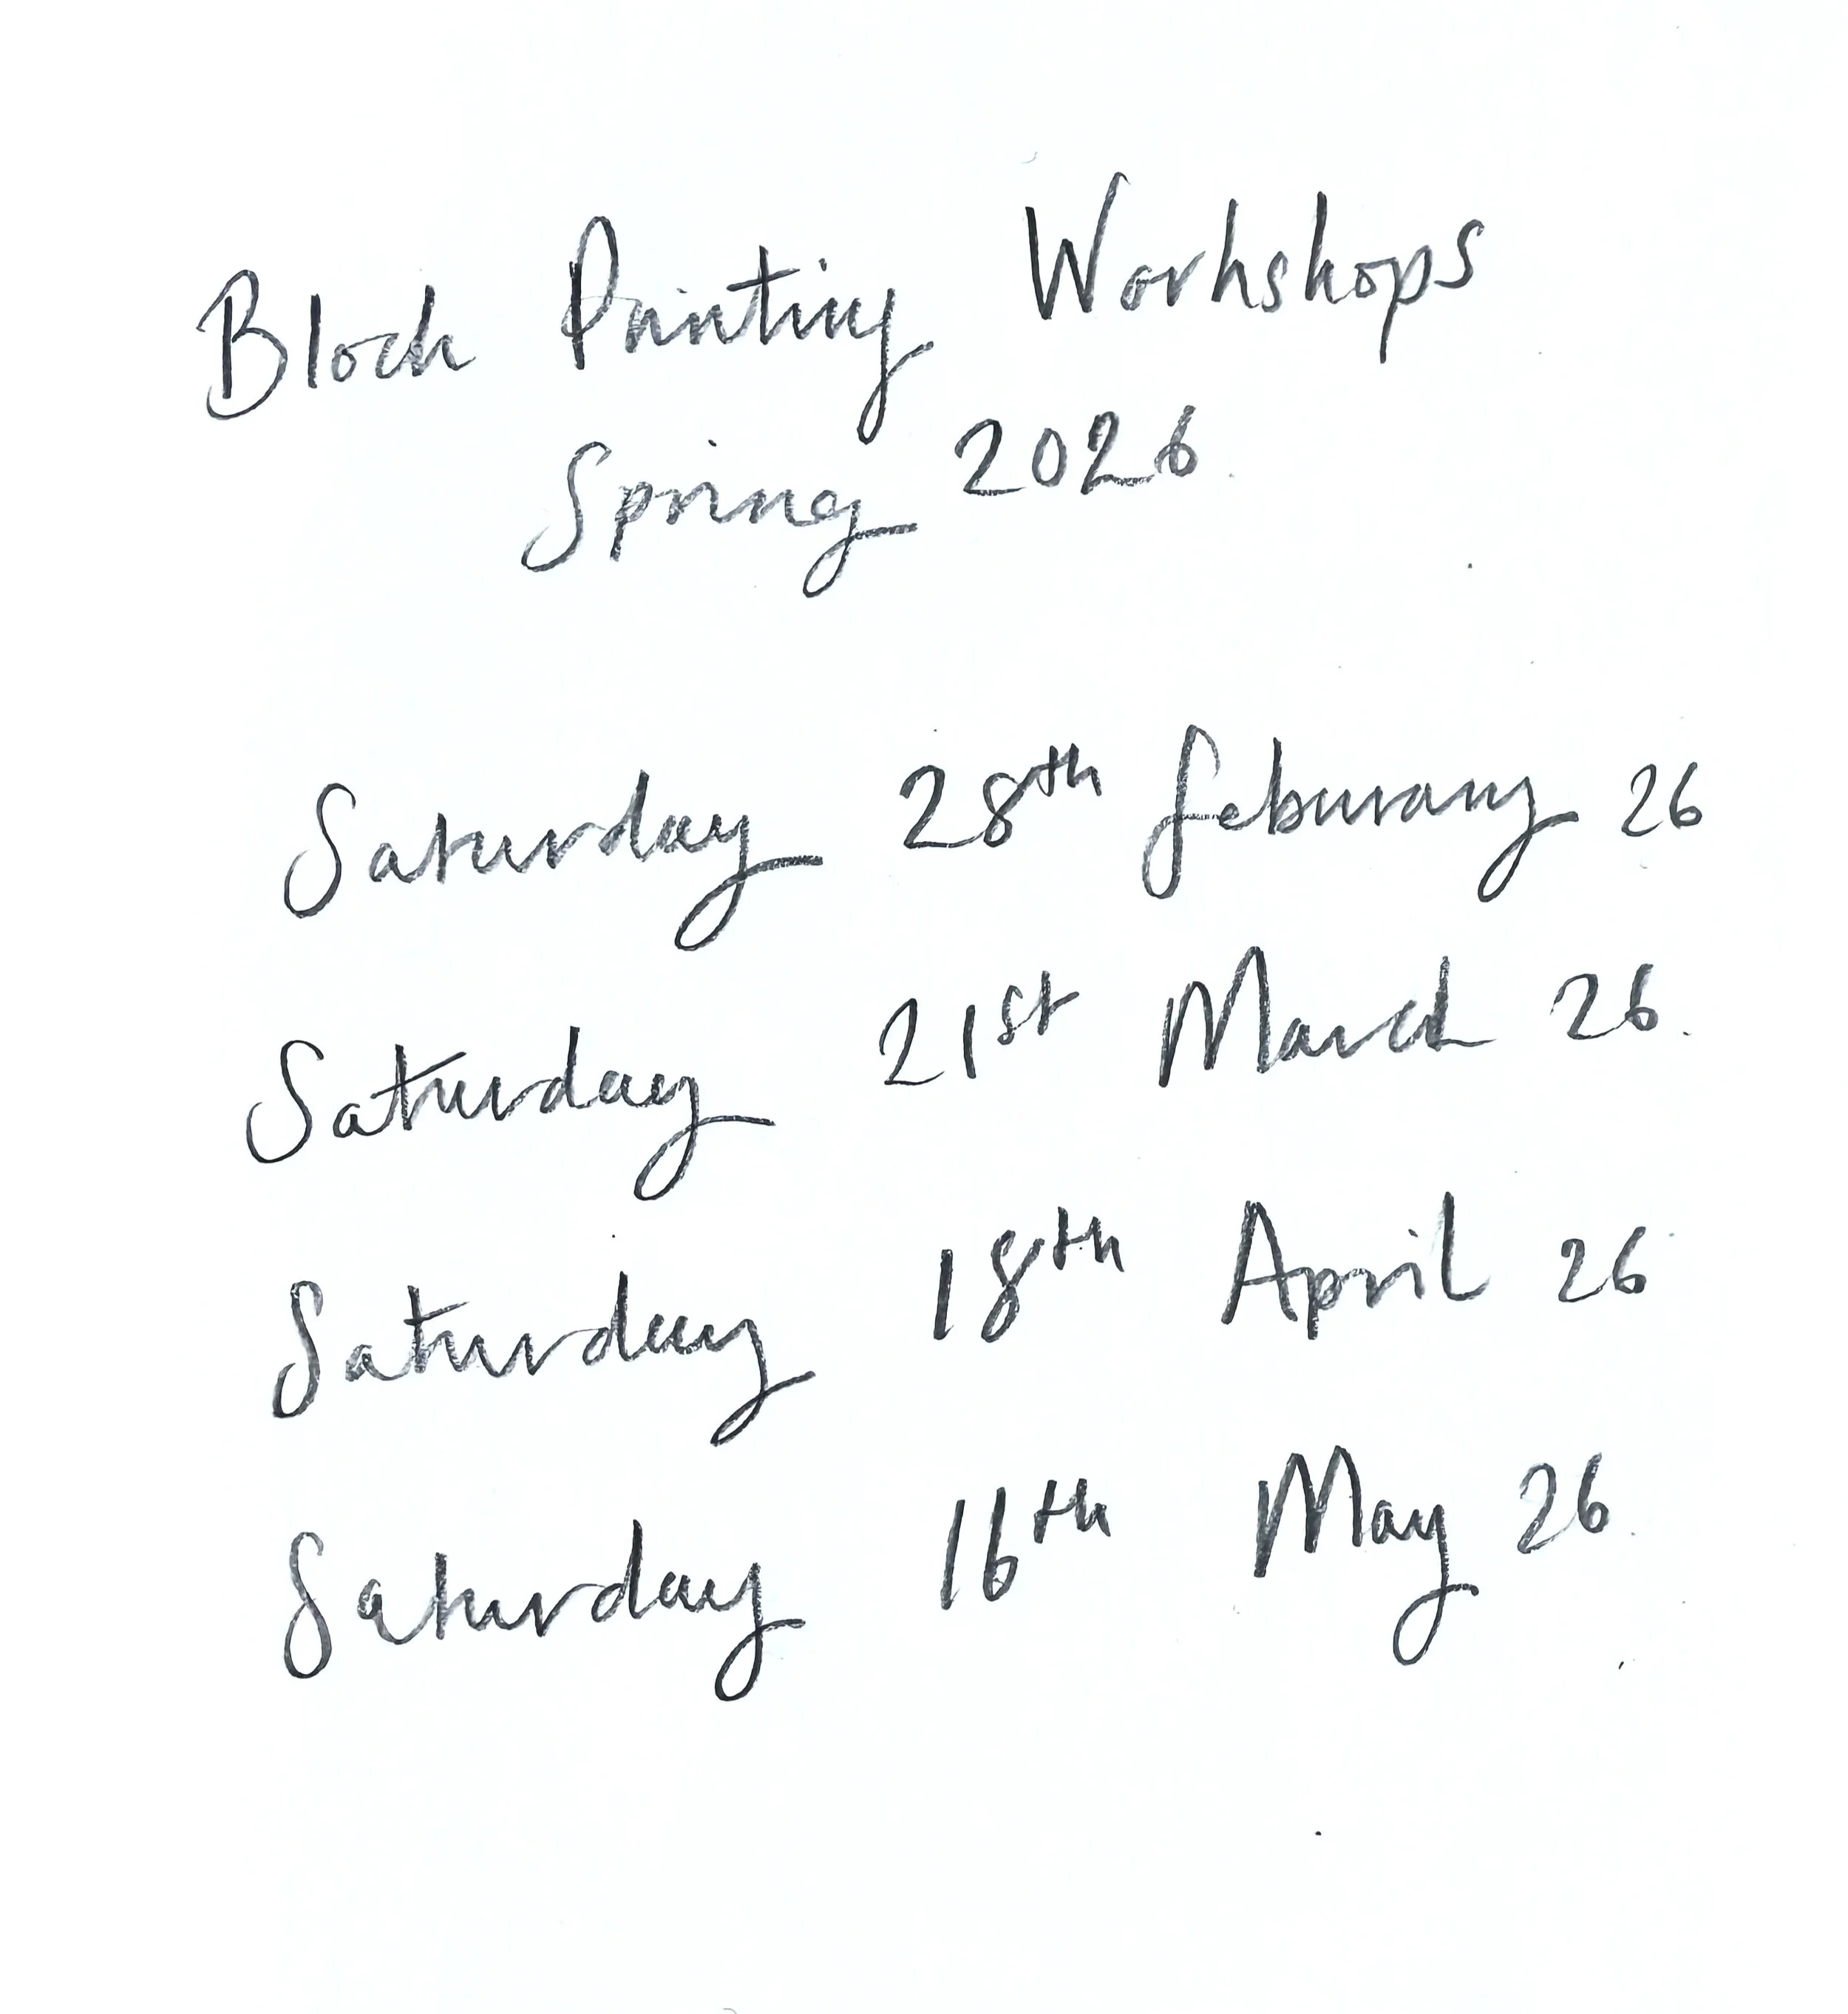 Block Printing Workshops
Spring 2026
Saturday 28th February 26
Saturday 21st March 26.
Saturday 18th April 26
Saturday 16th May 26.